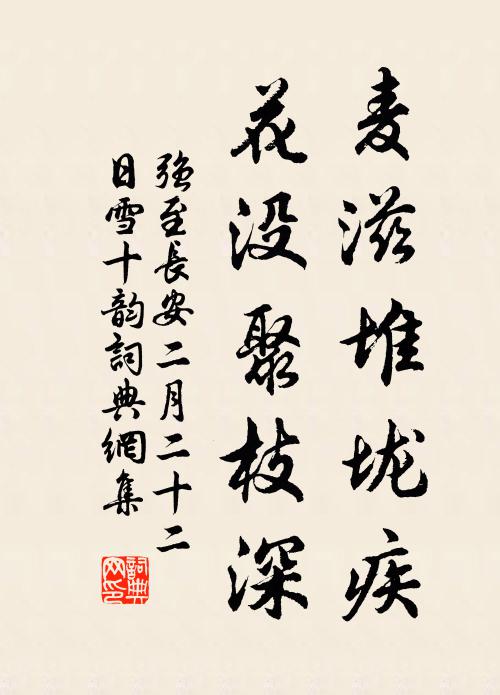 麦滋堆垅疾
花没聚枝深
强至長安二月二十二
日雪十韵詞典網集
詞典
网印